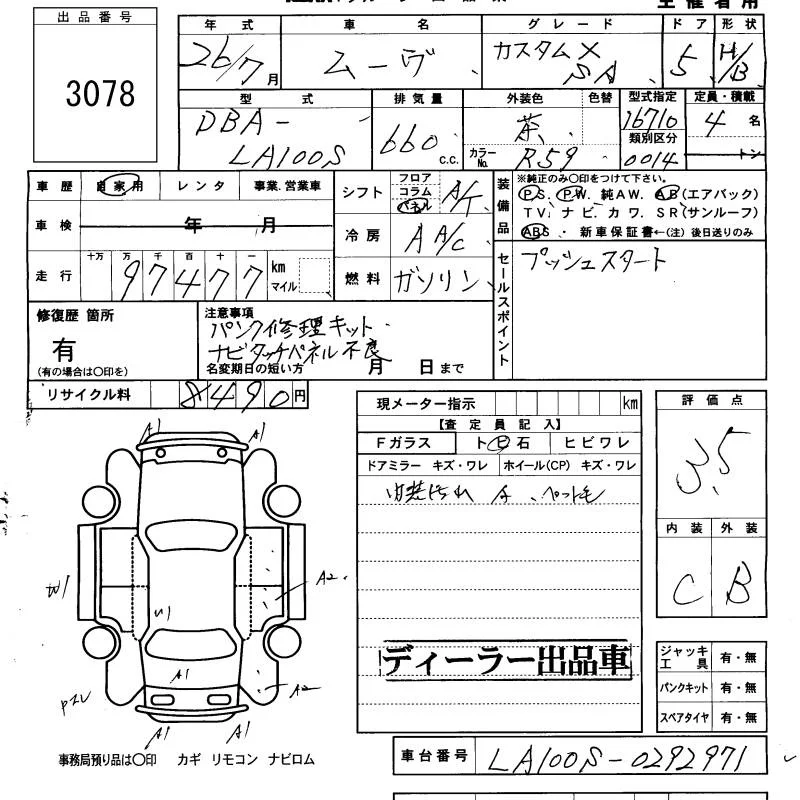 出品番号
3078
年式 車名 グレード ドア 形状
26/7月 ムーヴ カスタムX SA 5 H/B
型式 排気量 外装色 色替 型式指定 定員・積載
DBA-LA100S 660 c.c. 茶 カラーNo. R59 16710 類別区分 0014 4名 トン
車歴 自家用 レンタ 事業.営業車
車検 年 月
走行 十万 万 千 百 十 一
97477 km マイル
シフト フロア コラム パネル A/T
冷房 A A/C
燃料 ガソリン
装備品
※純正のみ〇印をつけて下さい。
P S. P W. 純AW. A B(エアバック)
T V. ナ ビ. カ ワ. S R(サンルーフ)
ABS . 新車保証書←(注) 後日送りのみ
セールスポイント
プッシュスタート
修復歴 箇所
有
(有の場合は〇印を)
注意事項
パンク修理キット
ナビタッチパネル不良
名変期日の短い方 月 日 まで
リサイクル料 8490円
現メーター指示 km
【査定員記入】
Fガラス ト ビ 石 ヒビワレ
ドアミラー キズ・ワレ ホイール(CP) キズ・ワレ
内装汚れ ペット毛
ディーラー出品車
評価点
3.5
内装 外装
C B
ジャッキ工具 有・無
パンクキット 有・無
スペアタイヤ 有・無
A1 A1
W1 A2
U1
A1
A2
A1 A1
事務局預り品は〇印 カギ リモコン ナビロム
車台番号 LA100S-0292971